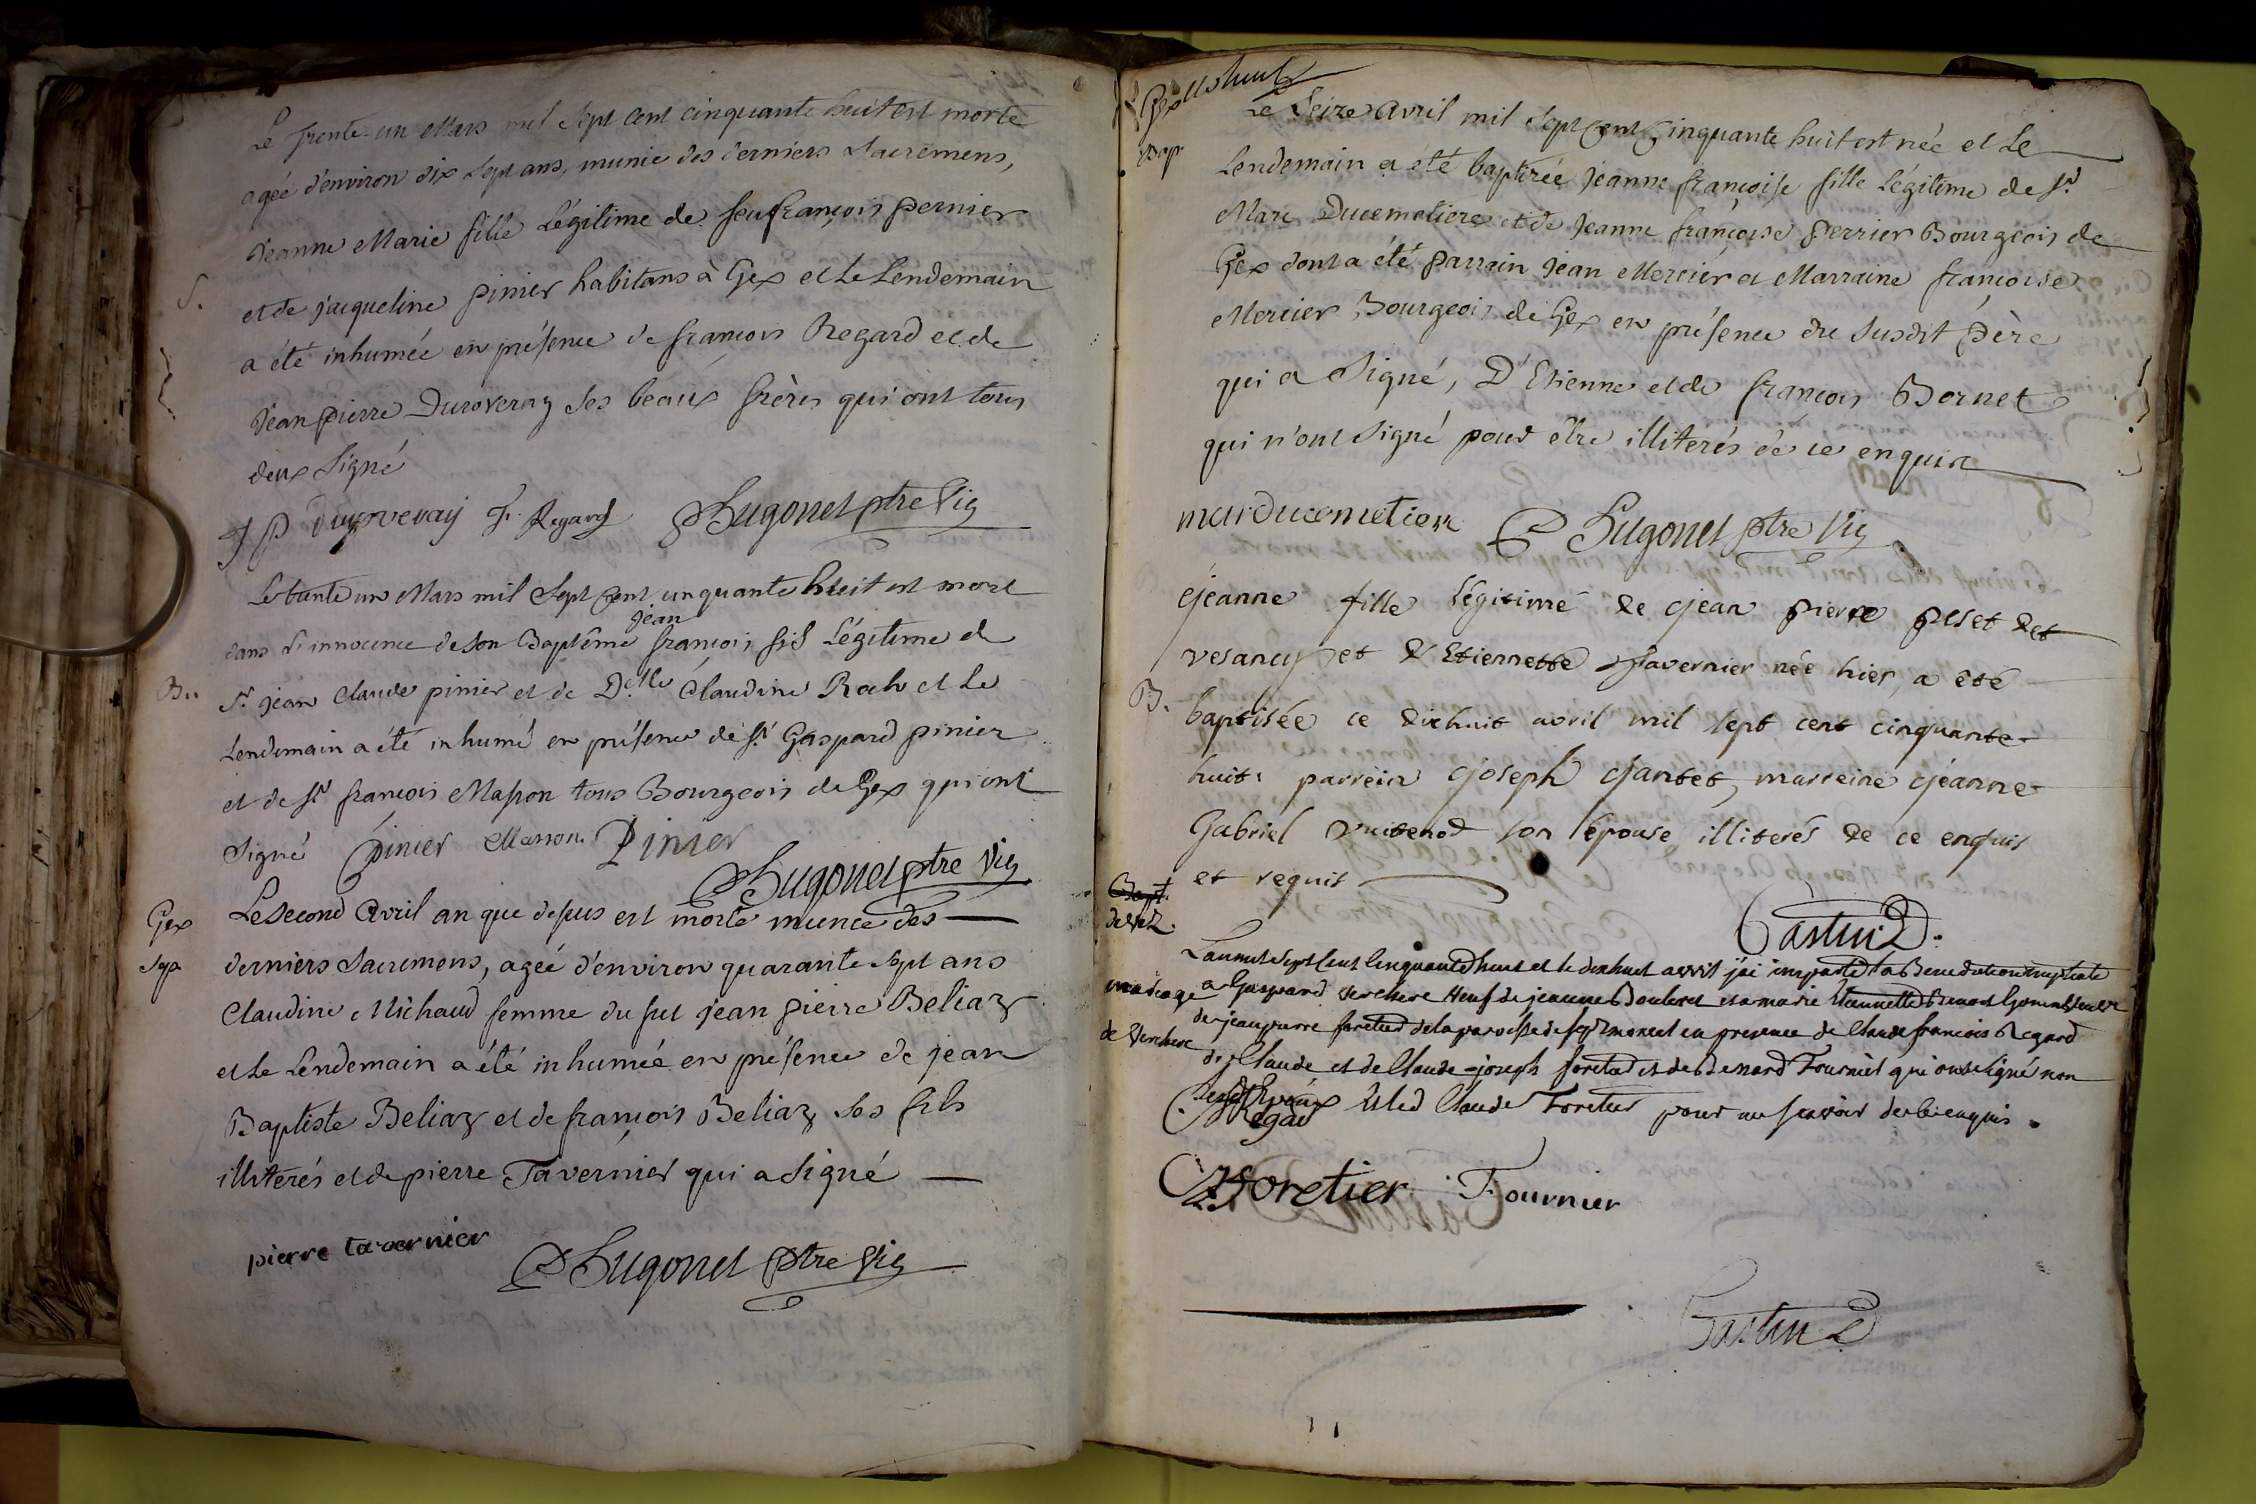 Le trente-un Mars mil Sept Cent cinquante huit est morte
agée d'environ dix Sept ans, munie des derniers Sacremens,
Jeanne Marie fille Légitime de feu françois pernier
S. et de jacqueline pinier habitans à Gex et Le Lendemain
a été inhumée en présence de françois Regard et de
Jean pierre Duroveray ses beaux frères qui ont tous
deux Signé
J P duroveray f. Regard Hugonet ptre Vic
Le trente un Mars mil Sept Cent cinquante huit est mort
jean
dans L'innocence de son Baptême françois fils Légitime de
B. Sr. jean Claude pinier et de Delle Claudine Roch et Le
Lendemain a été inhumé en présence de Sr. Gaspard pinier
et de Sr. françois Masson tous Bourgeois de Gex qui ont
Signé pinier Masson. Pinier
Hugonet ptre Vic
Gex Le second Avril an que dessus est morte munie des
Sep. derniers Sacremens, agée d'environ quarante Sept ans
Claudine Michaud femme du feu jean pierre Beliaz
et Le Lendemain a été inhumée en présence de jean
Baptiste Beliaz et de françois Beliaz ses fils
illiterés et de pierre Tavernier qui a Signé
pierre tavernier Hugonet ptre Vic
Gex
Le Seize Avril mil Sept Cent Cinquante huit est née et Le
Bap. Lendemain a été baptizée Jeanne françoise fille Légitime de Sr.
Marc Ducemetiere et de Jeanne françoise Perrier Bourgeois de
Gex dont a été parrain Jean Mercier et Marraine françoise
Mercier, Bourgeois de Gex en présence du susdit Père
qui a Signé, D'Etienne et de françois Bornet
qui n'ont Signé pour être illiterés de ce enquis
marc ducemetiere Hugonet ptre Vic
Jeanne fille légitime de Jean pierre
vesancy et d'Etiennette Tavernier née hier, a été
B. baptisée ce dixhuit avril mil sept cent cinquante
huit: parrein Joseph Jantet, marreine Jeanne
Gabriel Vuitenod son épouse illiterés de ce enquis
et requis
Castin
L'an mil Sept Cent Cinquante huit et le dixhuit avril j'ai imparti la Benediction nuptiale
mariage a Gaspard Verchere Veuf de jeanne
de Verchere de jean pierre foretier de la paroisse de en presence de Claude francois Regard
de Claude et de Claude-joseph foretier et de Bernard Fournier qui ont signé non
Led Claude Foretier pour ne sçavoir de ce enquis.
Regad
Foretier Fournier
Castin